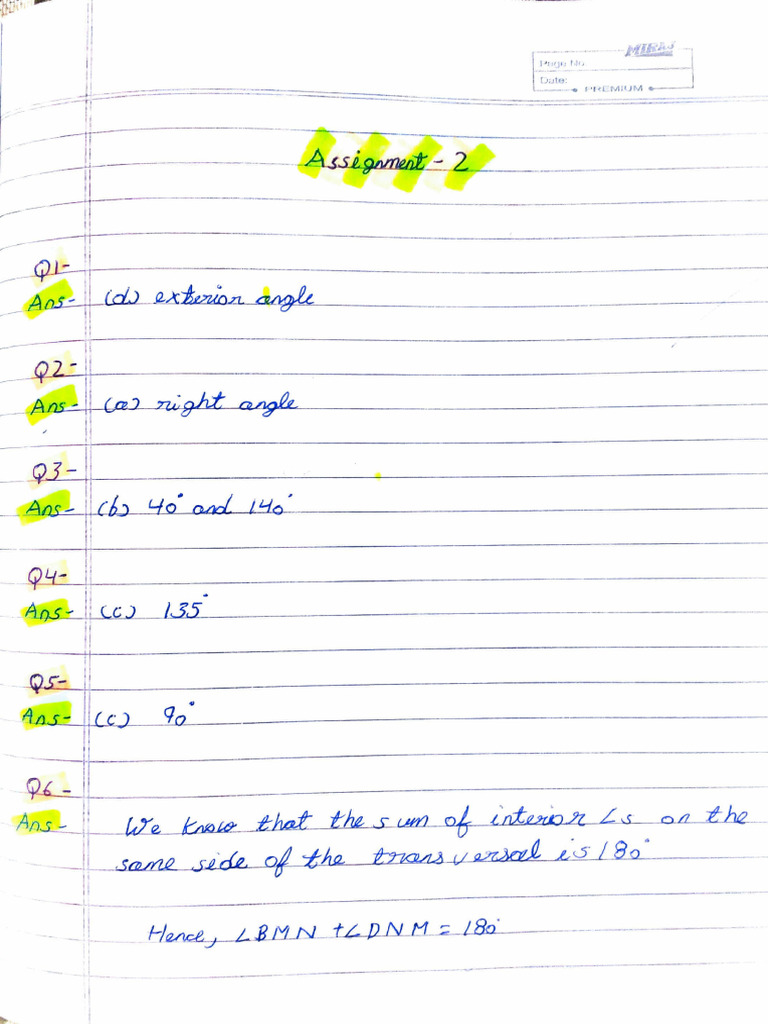 MIRaj
Page No.
Date:
PREMIUM
Assignment - 2
Q1-
Ans- (d) exterior angle
Q2-
Ans- (a) right angle
Q3-
Ans- (b) 40° and 140°
Q4-
Ans- (c) 135°
Q5-
Ans- (c) 90°
Q6-
Ans- We know that the sum of interior ∠s on the
same side of the transversal is 180°
Hence, ∠BMN + ∠DNM = 180°